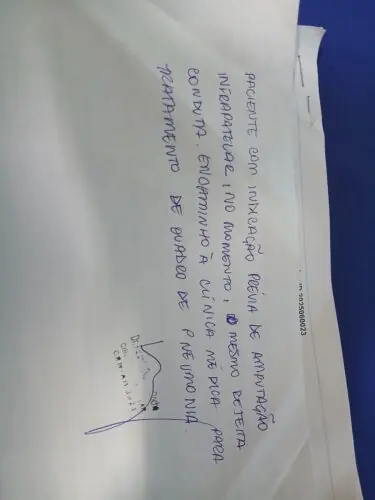 ID 2025060023
PACIENTE COM INDICAÇÃO PRÉVIA DE AMPUTAÇÃO
INFRAPATELAR, NO MOMENTO, O MESMO REJEITA
CONDUTA. ENCAMINHO À CLÍNICA MÉDICA PARA
TRATAMENTO DE QUADRO DE PNEUMONIA.